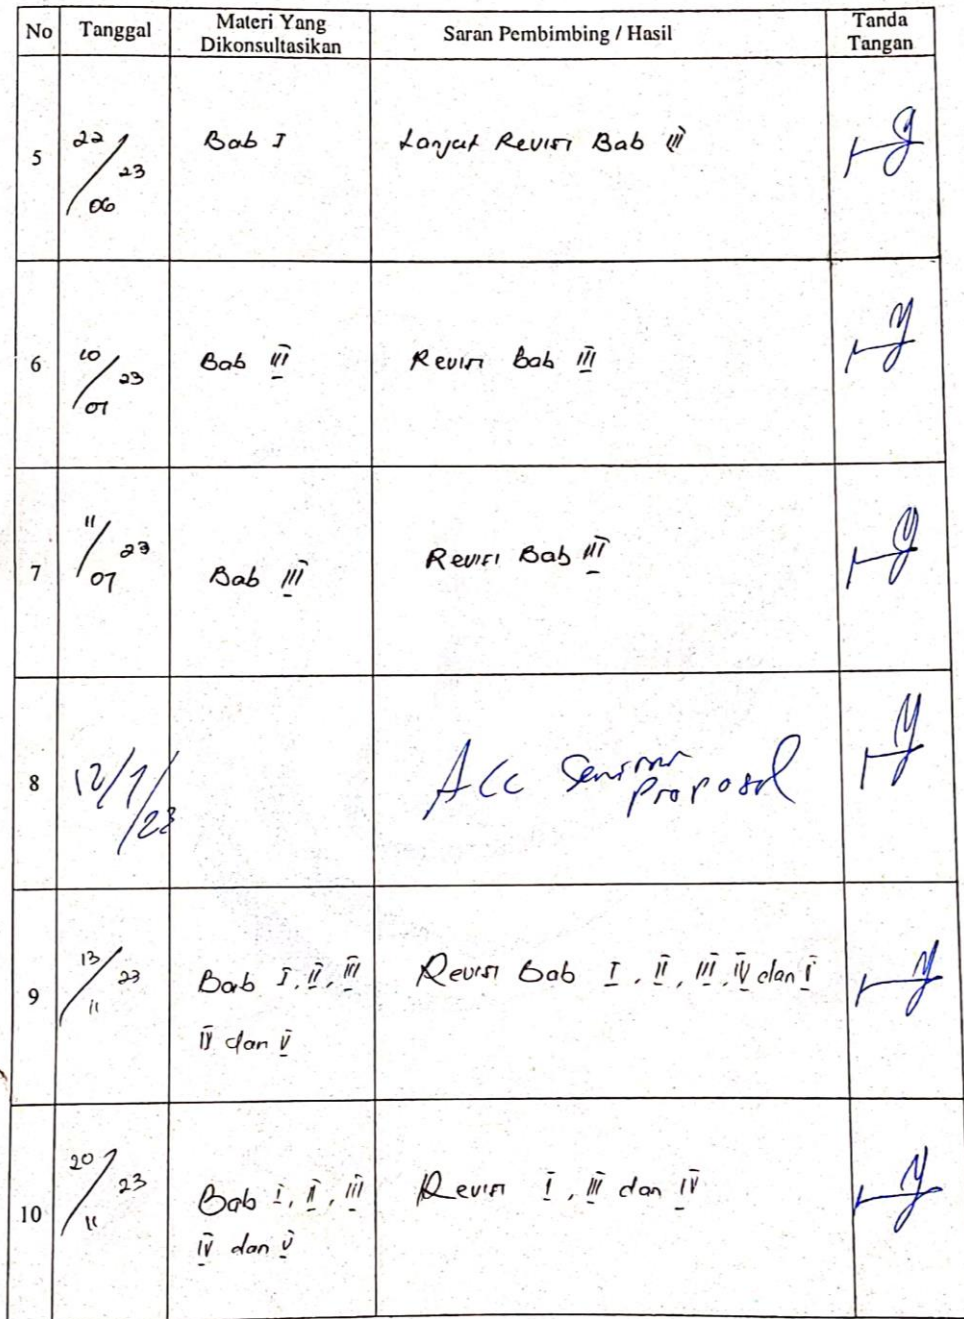 No Tanggal Materi Yang Dikonsultasikan Saran Pembimbing / Hasil Tanda Tangan
5 22/06 23 Bab I Lanjut Revisi Bab III
6 10/07 23 Bab III Revisi Bab III
7 11/07 23 Bab III Revisi Bab III
8 12/7/23 Acc Seminar
Proposal
9 13/11 23 Bab I, II, III Revisi Bab I, II, III, IV dan V
IV dan V
10 20/11 23 Bab I, II, III Revisi I, III dan IV
IV dan V